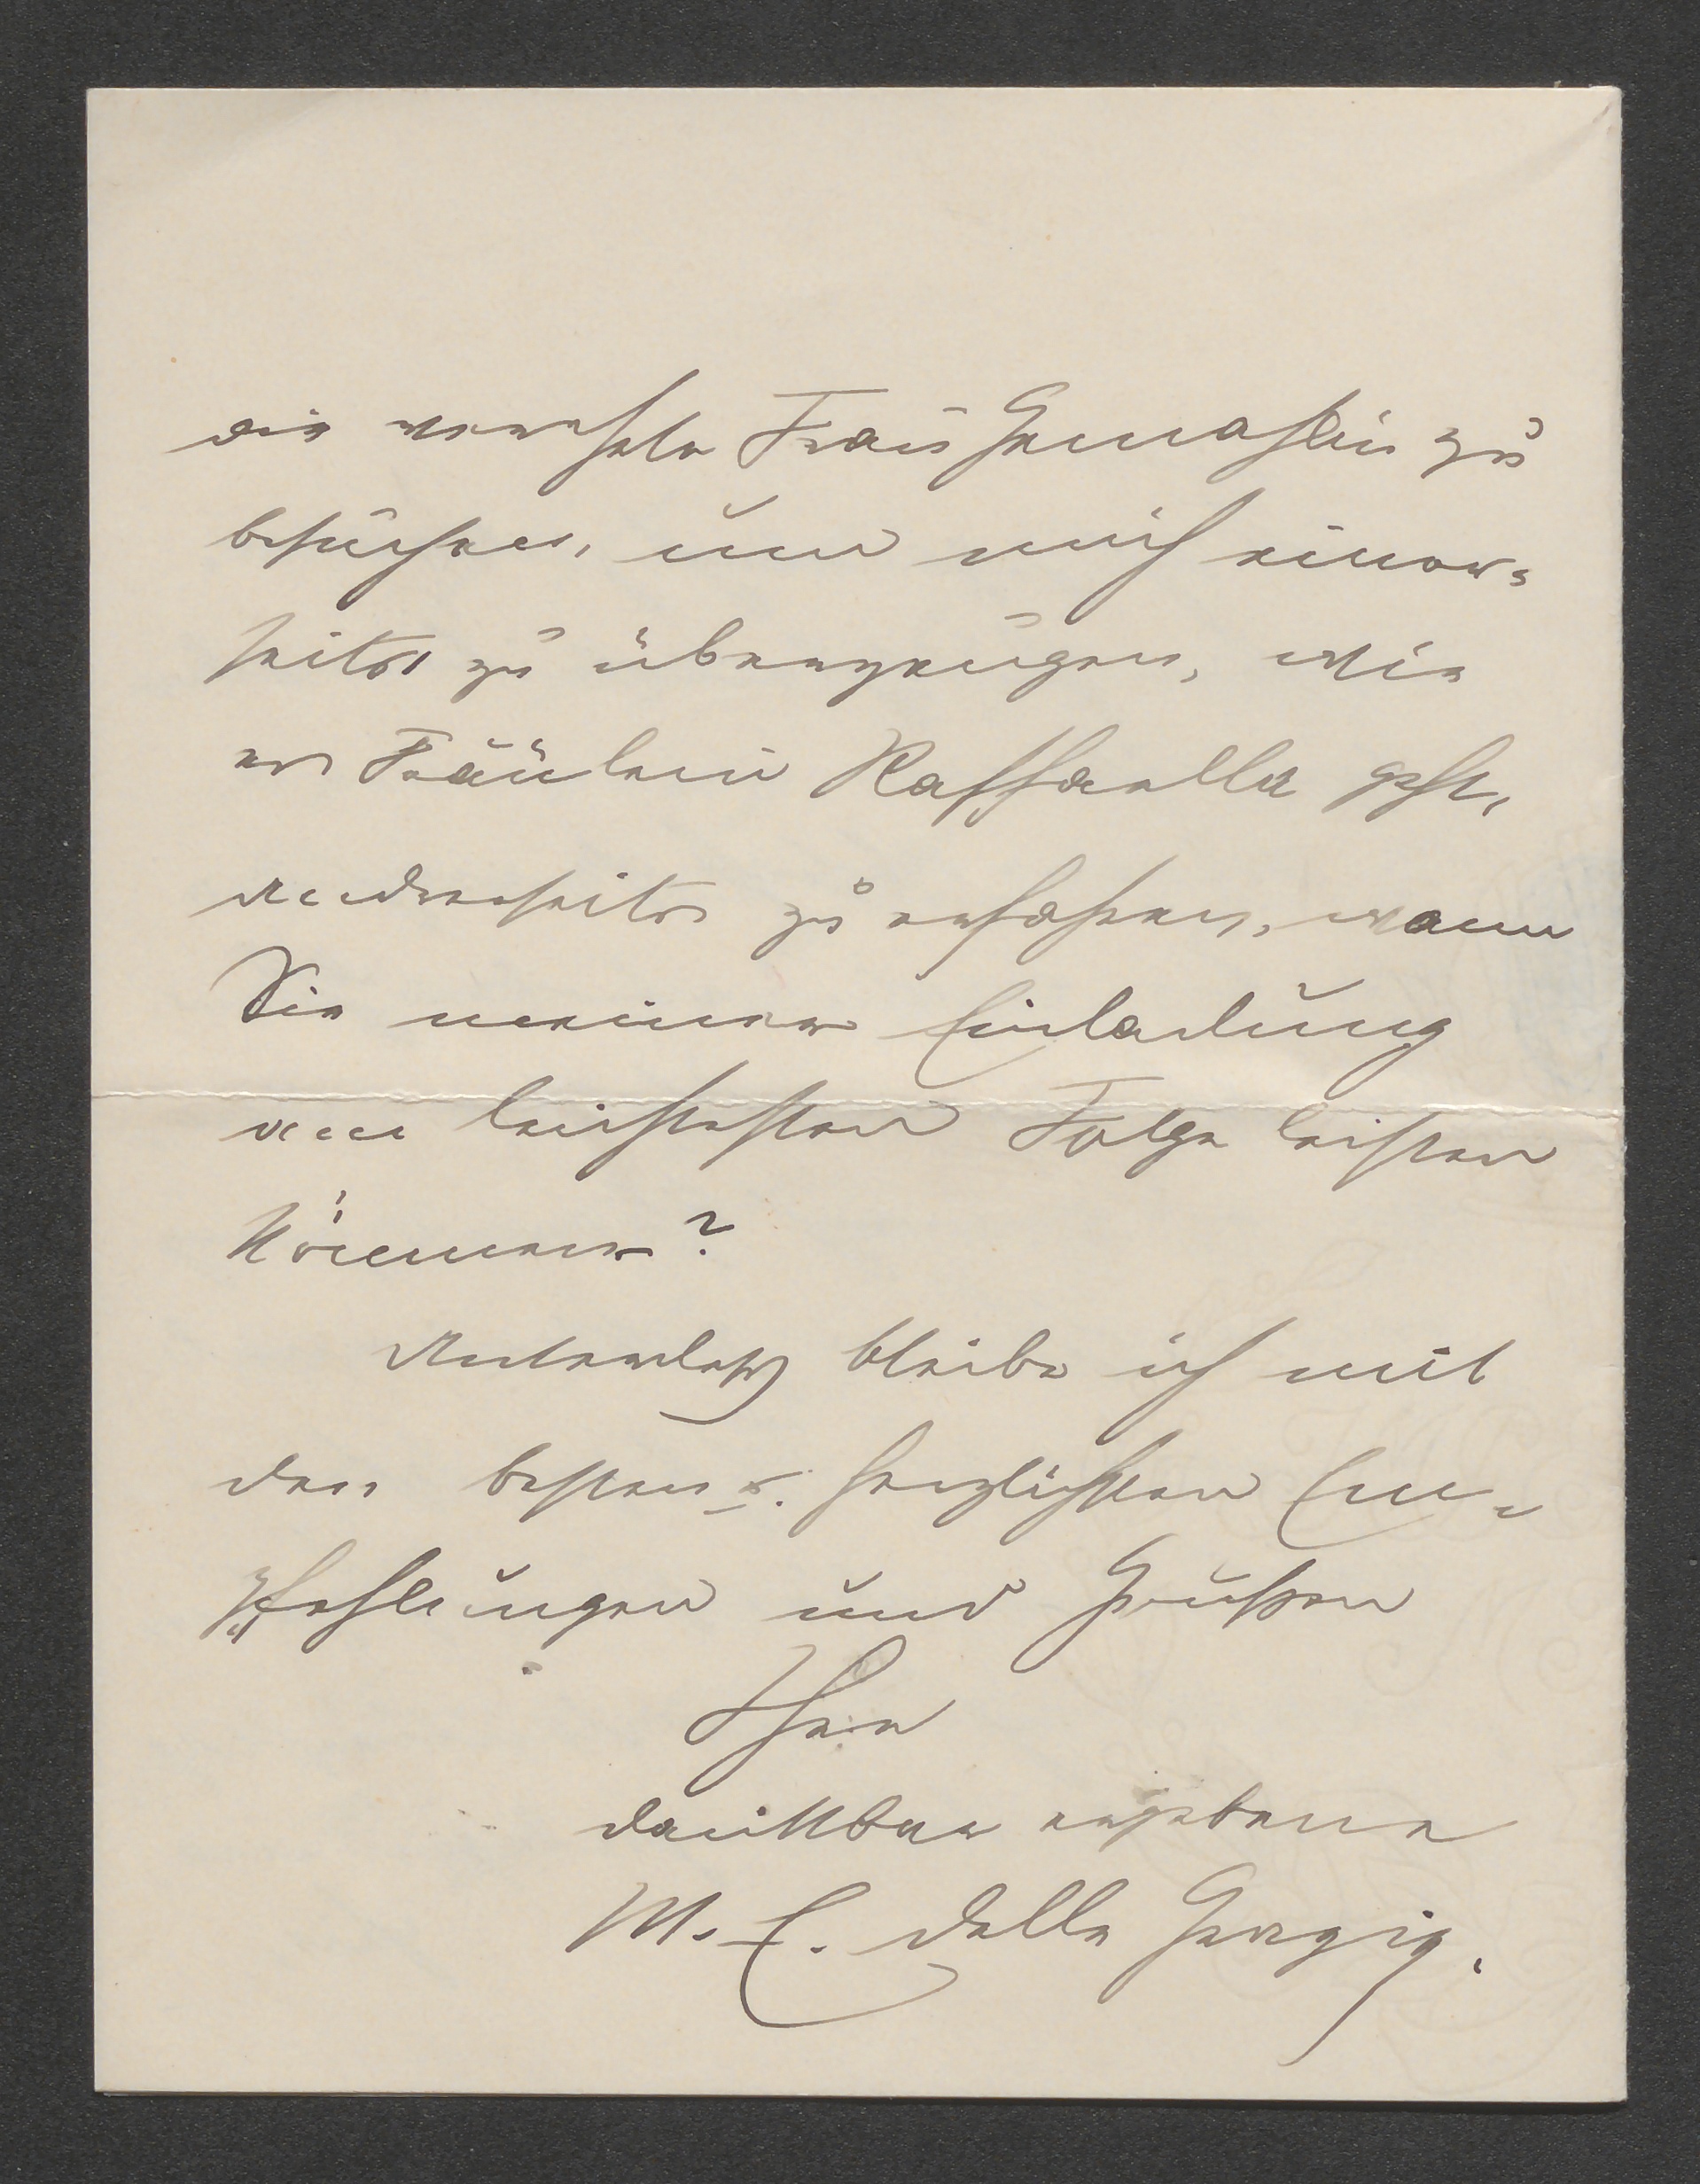 die verehrte Frau Gemahlin zu
besuchen, um mich einer-
seits zu überzeugen, wie
es Fräulein Raffaella geht,
anderseits zu erfahren, wann
Sie meiner Einladung
am leichtesten Folge leisten
können?
Unterdeß bleibe ich mit
den besten u. herzlichsten Em-
pfehlungen und Grüßen
Ihre
dankbar ergebene
M. E. delle Grazie.